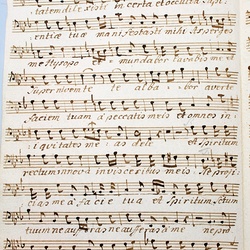 tatem dilexisti incerta et occulta Sapi
entiae tuae manifestasti mihi Asperges
me Hysopo mundabor lavabis me et
Super nivem te alba bor averte
faciem tuam a peccatis meis et omnes in
iquitates meas dele et Spiritum
rectum innova in visceribus meis Ne proji
cias me a facie tua et Spiritum Sctum
tuum ne auferas ne auferas a me ne pro